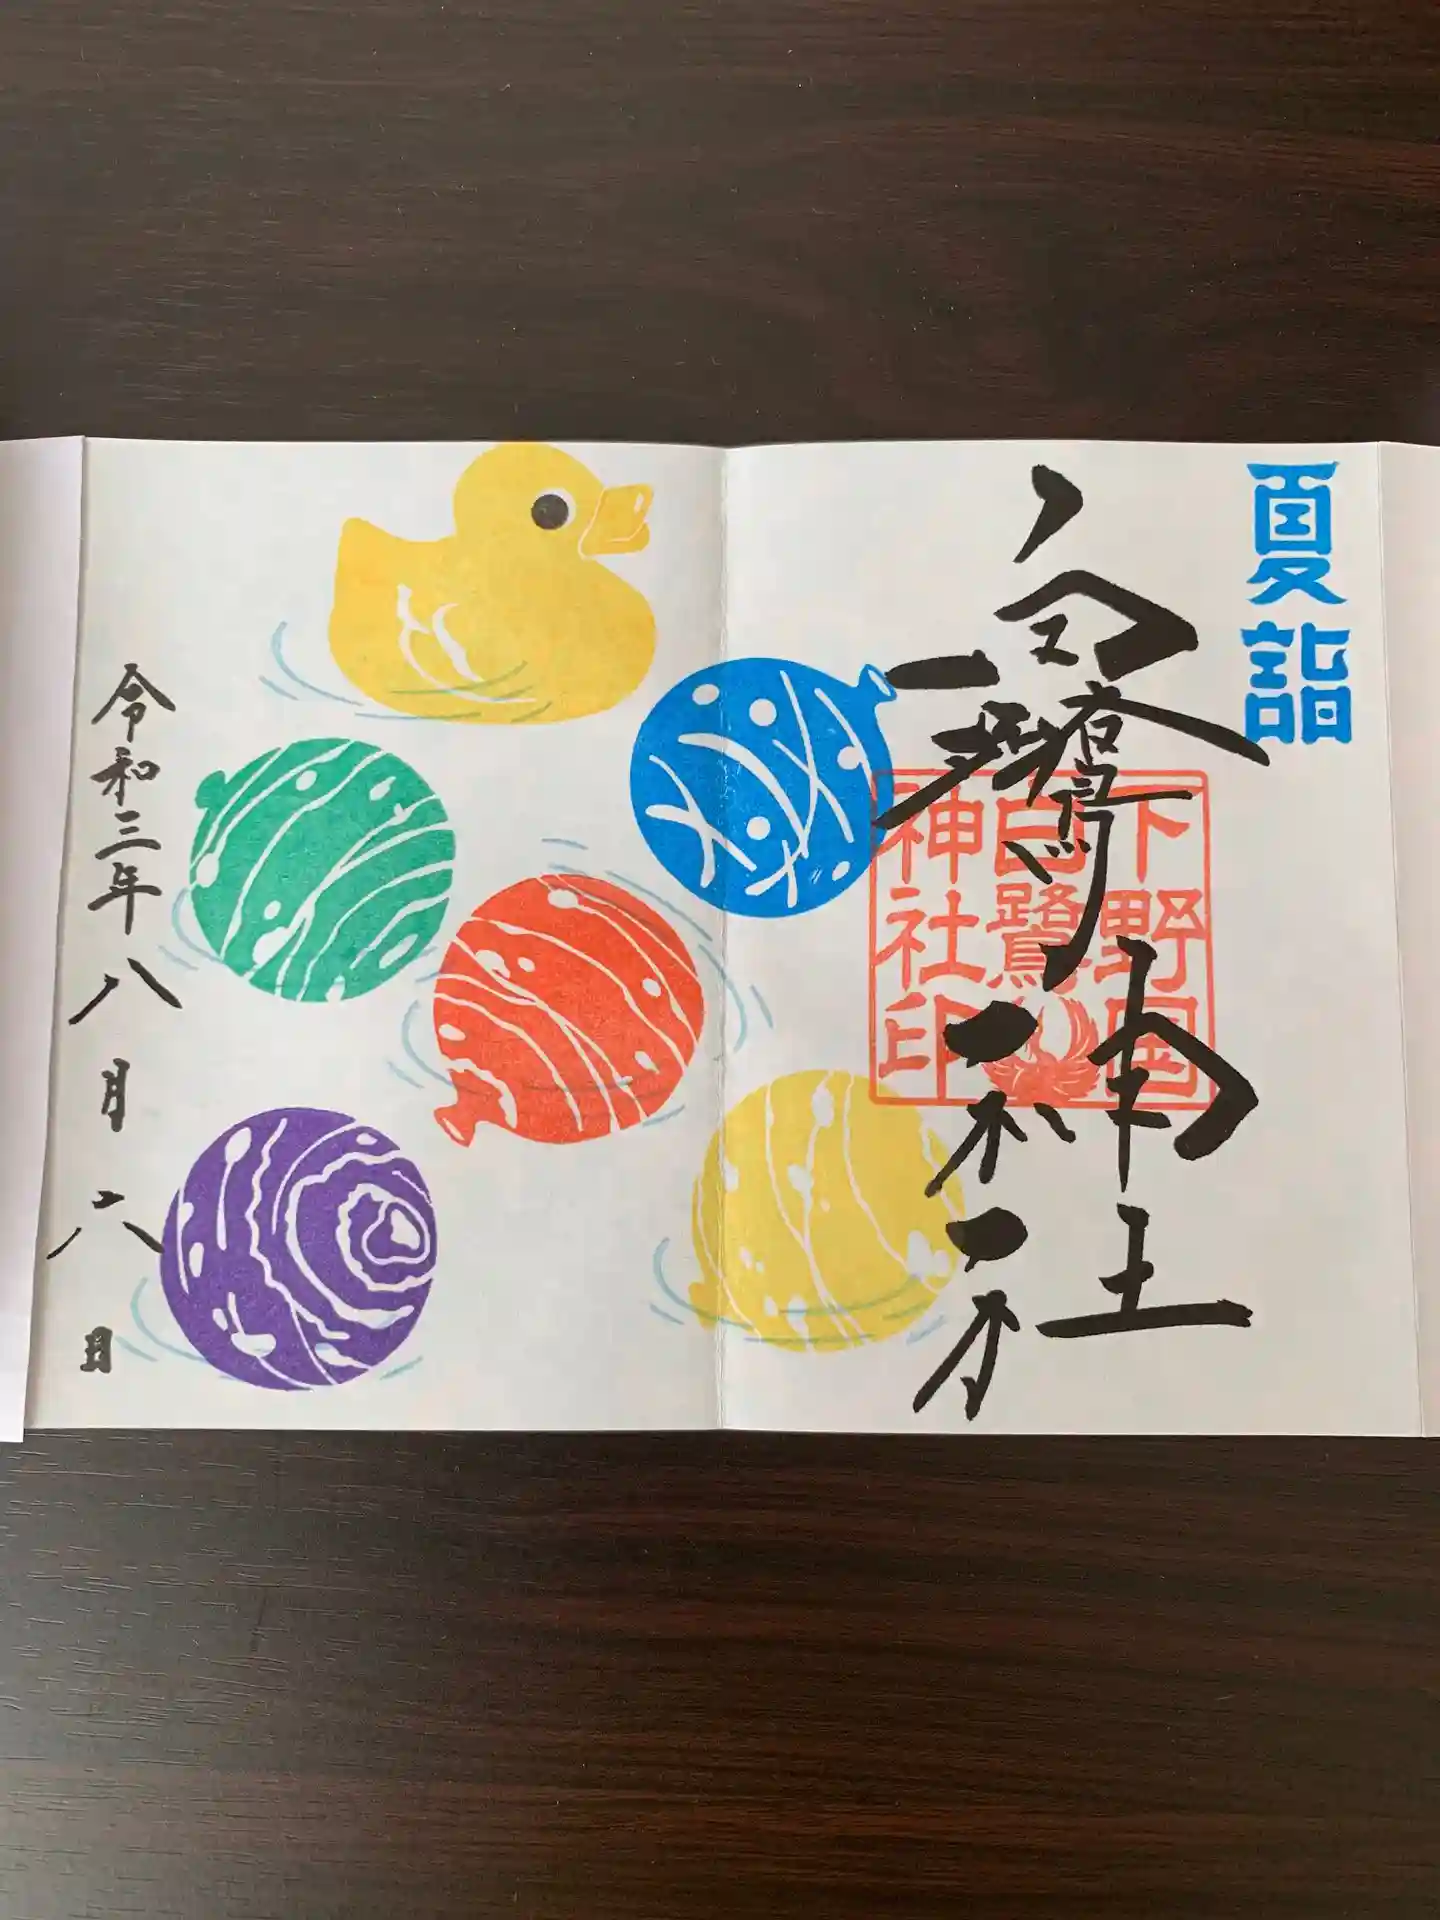 夏詣
白鷺神社
下野国
白鷺
神社印
令和三年八月六日